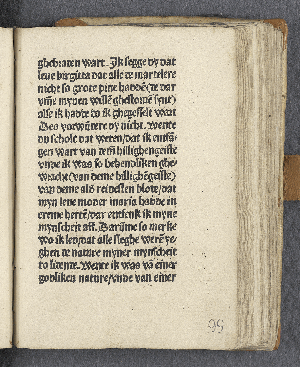 ghebraten wart. Ik segge dy dat
leue birgitta dat alle de martelere
nicht so grote pine hadden (de dar
vm̄e mynen willē ghestoruē synt)
alse ik hadde do ik ghegeselt wart
Des vorwūdere dy nicht. Wente
du schole dat weten/dat ik entfā-
gen wart van dem hillighen geiste
vnde ik was so behendliken ghe-
wracht (van deme hillighē geiste)
van deme alder reinesten blode/dat
myn leue moder maria hadde in
ereme herten/dar entfenk ik myne
mynscheit aff. Darūme so merke
wo ik leyt/dat alle sleghe werē ye-
ghen de nature myner mynscheit
to lidente. Wente ik was vā einer
godliken nature/vnde van einer
99